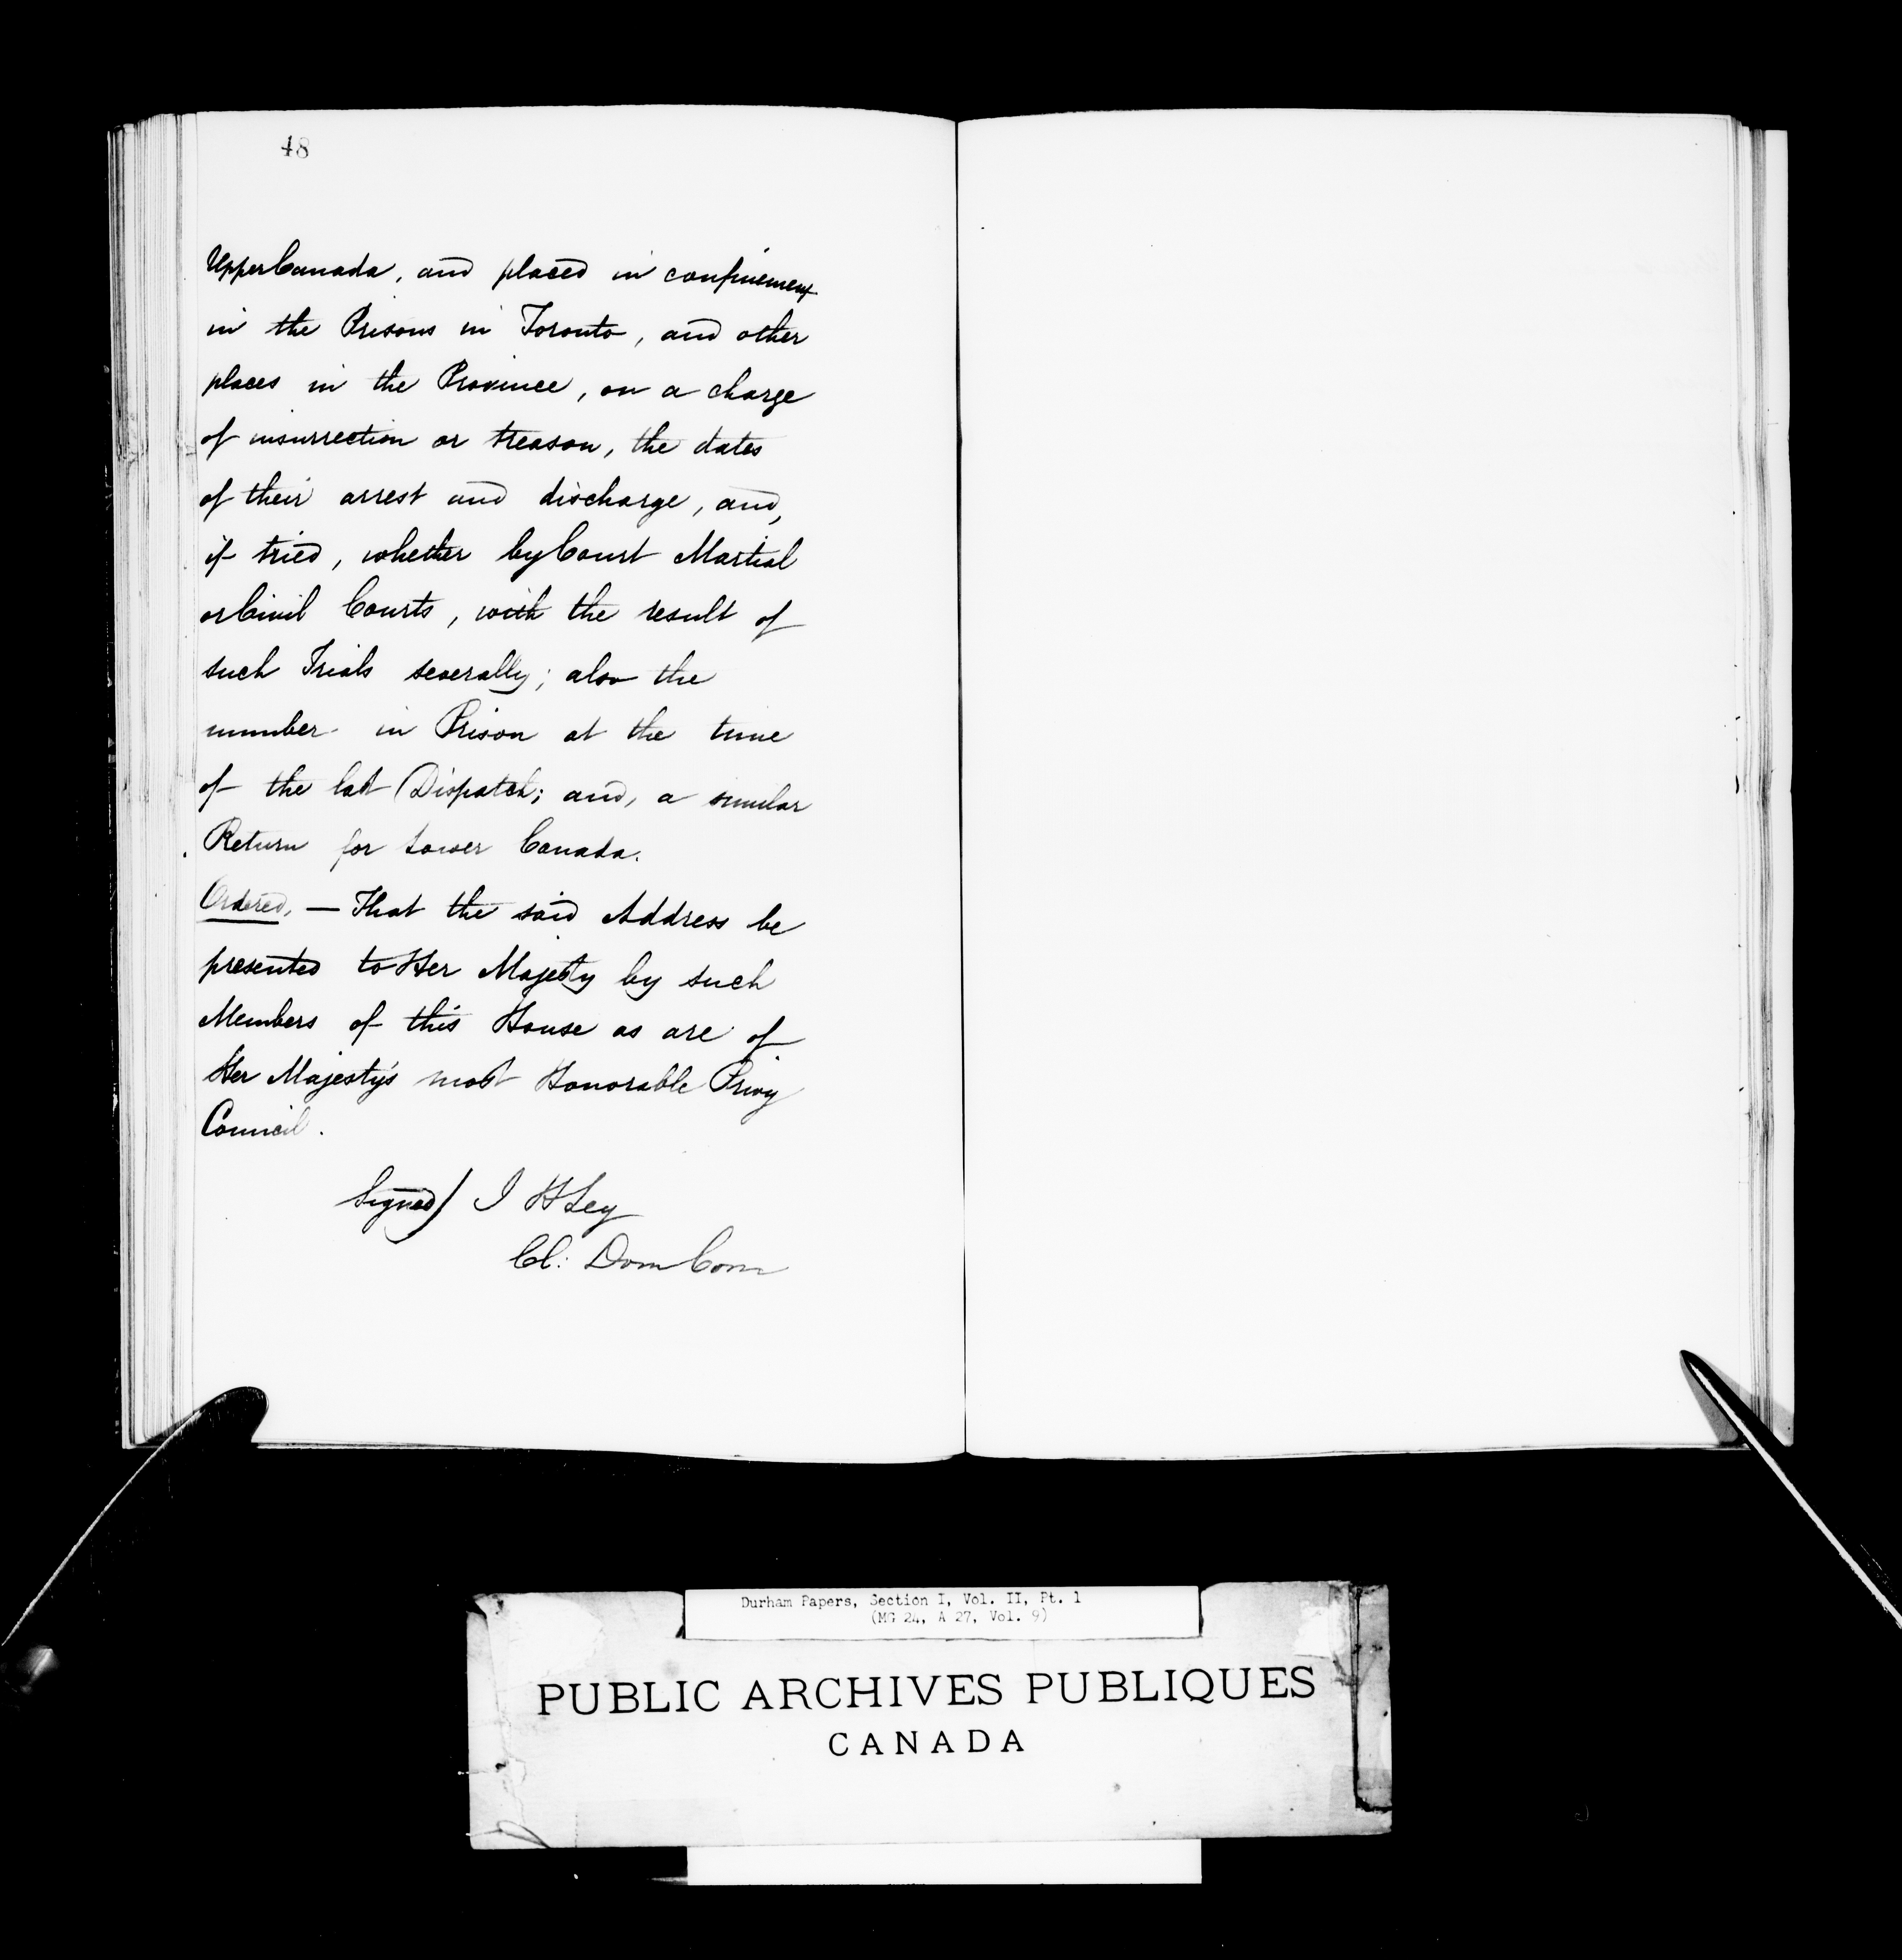 48
Upper Canada, and placed in confinement
in the Prisons in Toronto, and other
places in the Province, on a charge
of insurrection or treason, the dates
of their arrest and discharge, and,
if tried, whether by Court Martial
or Civil Courts, with the result of
such Trials severally; also the
number in Prison at the time
of the last Dispatch; and, a similar
Return for Lower Canada.
Ordered, — That the said Address be
presented to Her Majesty by such
Members of this House as are of
Her Majesty's most Honorable Privy
Council.
Signed) J H Ley
Cl: Dom Com
Durham Papers, Section I, Vol. II, Pt. 1
(MG 24, A 27, Vol. 9)
PUBLIC ARCHIVES PUBLIQUES
CANADA